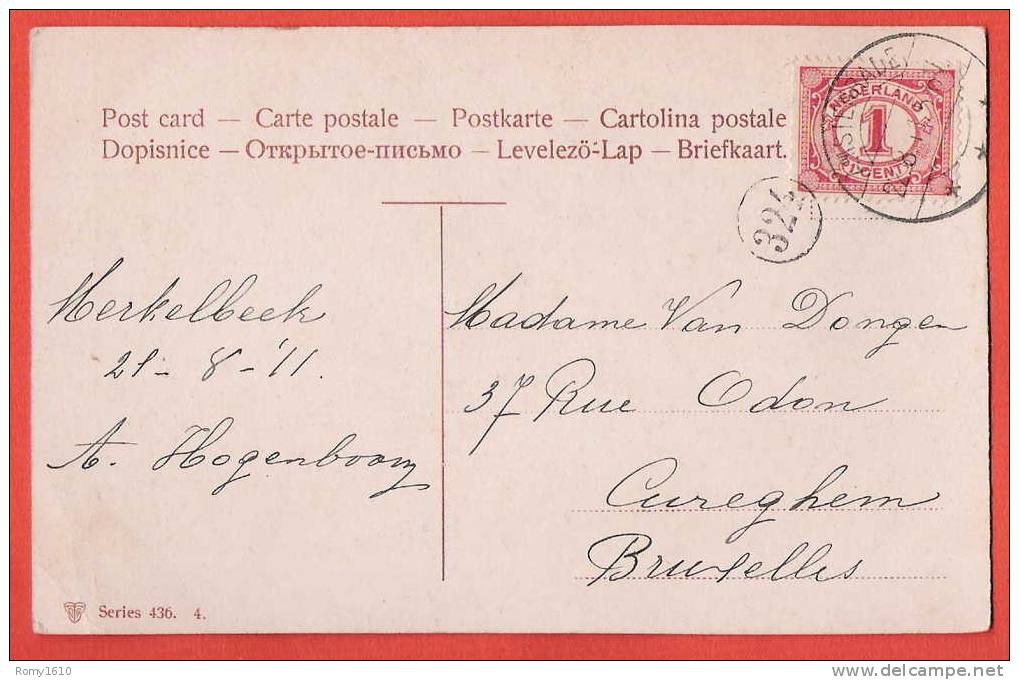 Post card — Carte postale — Postkarte — Cartolina postale
Dopisnice — Открытое-письмо — Levelezö-Lap — Briefkaart.
NEDERLAND
1
CENT
324
Merkelbeek
21 - 8 - '11.
A. Hogenboom
Madame Van Dongen
37 Rue Odon
Cureghem
Bruxelles
Series 436. 4.
Romy1610
www.delcampe.net